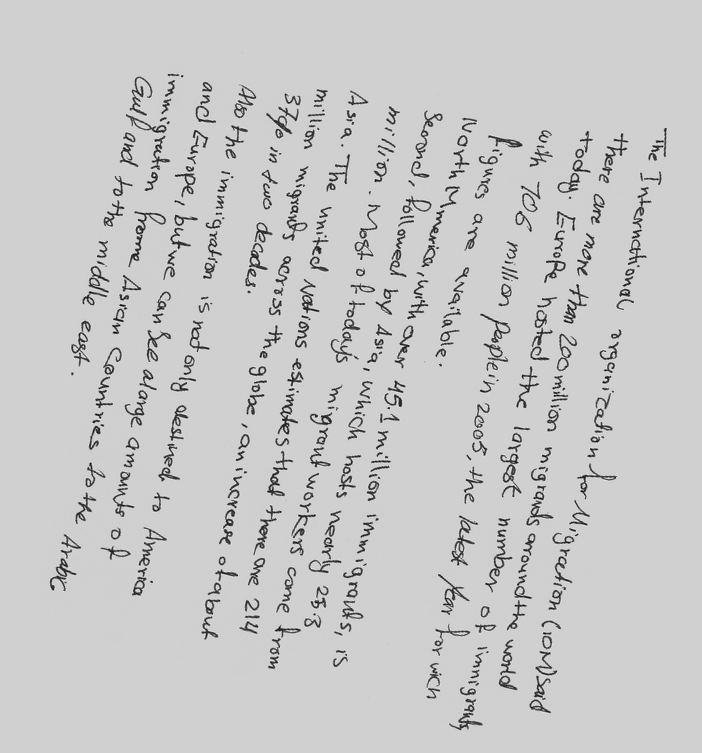 The International organization for Migraction (IOM) said
there are more than 200 million migrands around the world
today. Europe hosted the largest number of immigrants,
with 706 million people in 2005, the latest year for wich
figures are available.
North Mmerica, with over 45.1 million immigrants, is
Second, followed by Asia, which hosts nearly 25.3
million. Most of today's migrant workers come from
Asia. The united Nations estimates that there are 214
million migrants across the globe, an increase of about
37% in two decades.
Also the immigration is not only destined to America
and Europe, but we can see a large amounts of
immigration frome Asian Countries to the Arabic
Gulf and to the middle east.